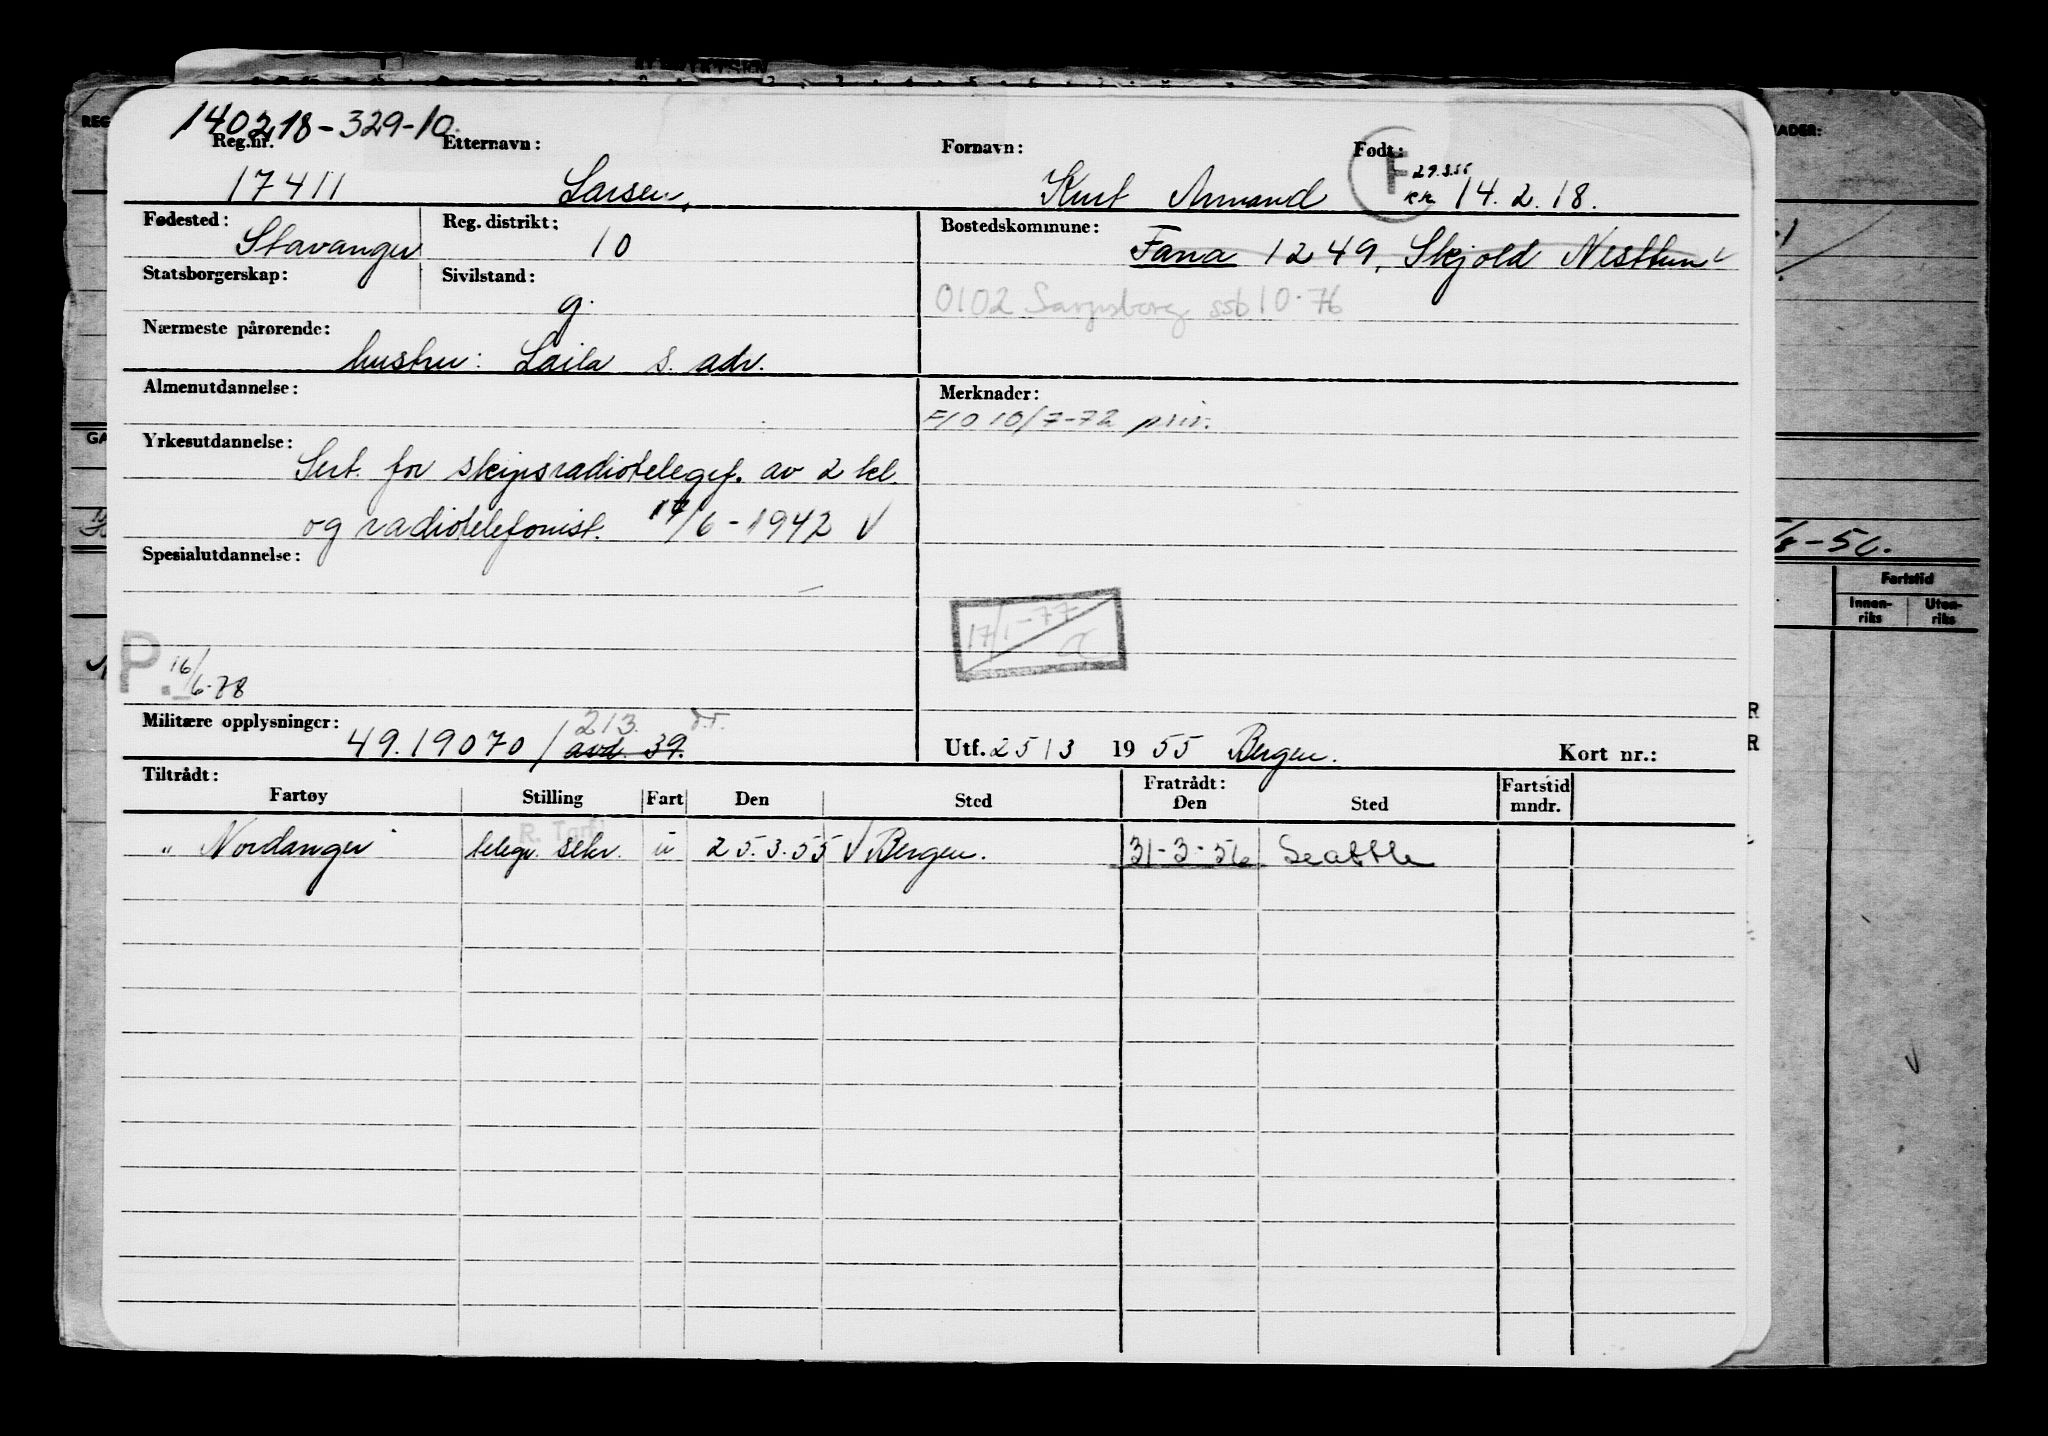 140218-329-10.
Reg.nr. Etternavn: Fornavn: Født:
17411 Larsen, Kurt Armand F 29.3.56 14.2.18.
Fødested: Reg. distrikt: Bostedskommune:
Stavanger 10 Fana 1249, Skjold Nesttun
Statsborgerskap: Sivilstand:
g. 0102 Sarpsborg ssb 10-76
Nærmeste pårørende:
hustru: Laila s. adr.
Almenutdannelse: Merknader:
F10 10/7-72 priv.
Yrkesutdannelse:
Sert. for skipsradiotelegrf. av 2 kl.
og radiotelefonist. 17/6-1942 V
Spesialutdannelse:
17/1-77
P. 16/6-78
Militære opplysninger: 213.
49.19070/ avd. 39. Utf. 25/3 1955 Bergen. Kort nr.:
Tiltrådt: Fratrådt: Fartstid
Fartøy Stilling Fart Den Sted Den Sted mndr.
" Nordanger telegr. sekr. u 25.3.55 V Bergen. 31-3-56 Seattle
/8-50.
Fartstid
Innen-
riks
Uten-
riks